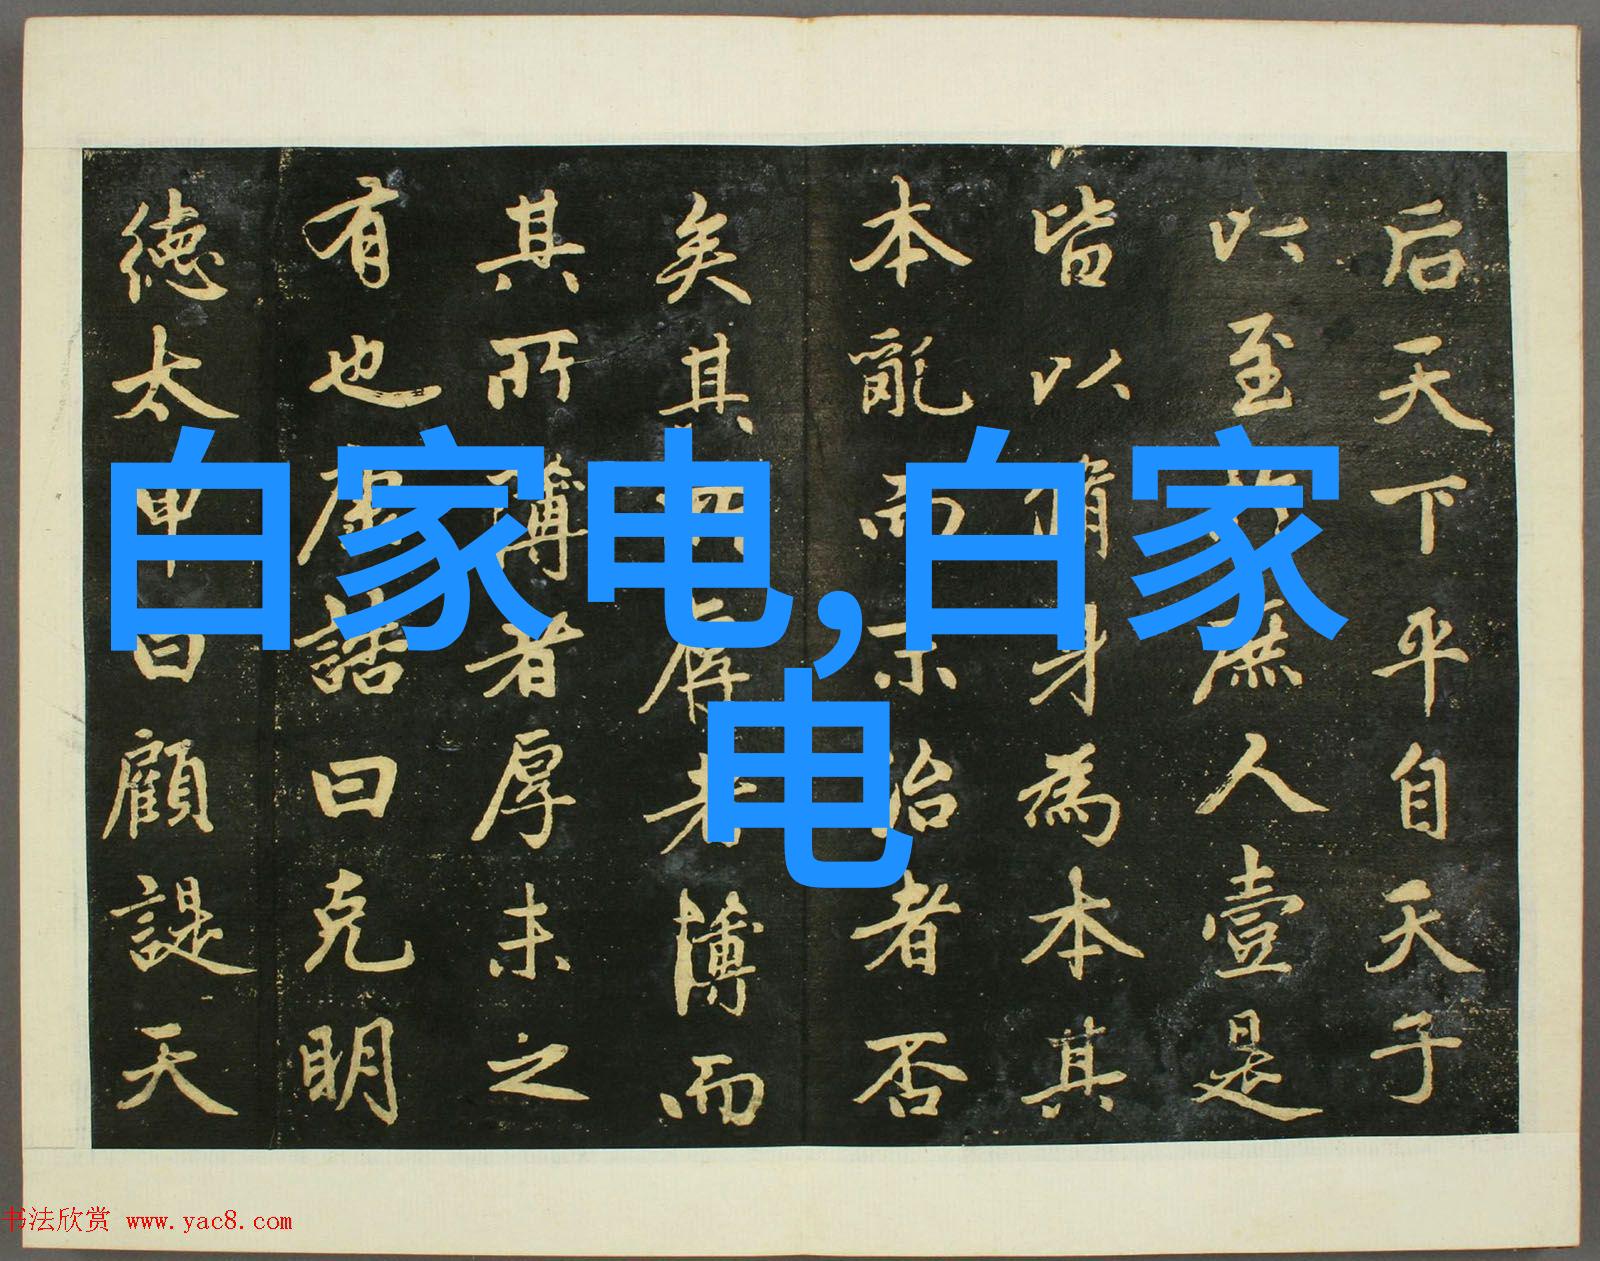 后天下平自天子
以至於庶人壹是
皆以脩身為本其
本亂而末治者否
矣其所厚者薄而
其所薄者厚未之
有也康誥曰克明
德太甲曰顧諟天
白家电,白家
电
书法欣赏 www.yac8.com